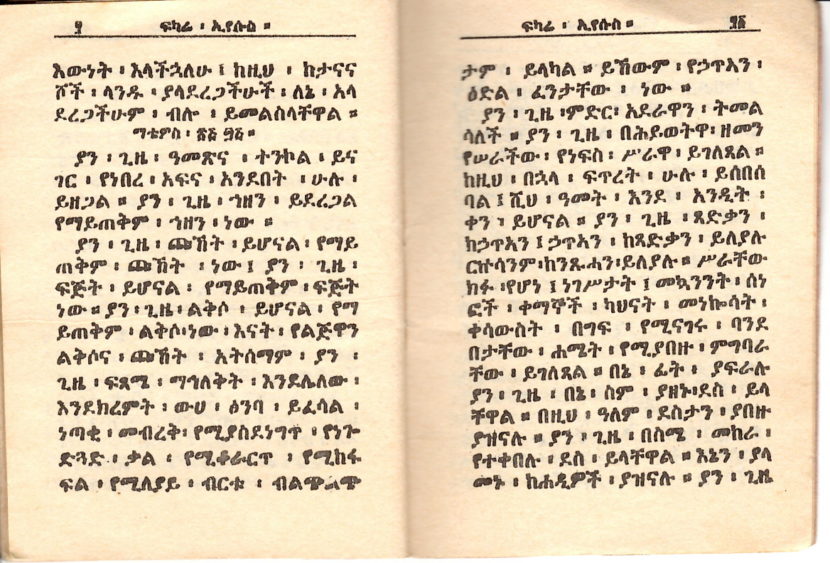 ፶ ፍካሬ ፡ ኢየሱስ ።
እውነት ፡ እላችኋለሁ ፤ ከዚህ ፡ ከታናና
ሾች ፡ ላንዱ ፡ ያላደረጋችሁት ፡ ለኔ ፡ አላ
ደረጋችሁም ፡ ብሎ ፡ ይመልስላቸዋል ።
ማቴዎስ ፡ ፳፭ ፵፭ ።
ያን ፡ ጊዜ ፡ ዓመጽና ፡ ተንኮል ፡ ይና
ገር ፡ የነበረ ፡ አፍና ፡ አንደበት ፡ ሁሉ ፡
ይዘጋል ። ያን ፡ ጊዜ ፡ ኀዘን ፡ ይደረጋል
የማይጠቅም ፡ ኀዘን ፡ ነው ።
ያን ፡ ጊዜ ፡ ጩኸት ፡ ይሆናል ፡ የማይ
ጠቅም ፡ ጩኸት ፡ ነው ፤ ያን ፡ ጊዜ ፡
ፍጅት ፡ ይሆናል ፡ የማይጠቅም ፡ ፍጅት
ነው ። ያን ፡ ጊዜ ፡ ልቅሶ ፡ ይሆናል ፡ የማ
ይጠቅም ፡ ልቅሶ ፡ ነው ፡ እናት ፡ የልጅዋን
ልቅሶና ፡ ጩኸት ፡ አትሰማም ፡ ያን ፡
ጊዜ ፡ ፍጻሜ ፡ ማኅለቅት ፡ እንደሌለው ፡
እንደክረምት ፡ ውሀ ፡ ፅንባ ፡ ይፈሳል ፡
ነጣቂ ፡ መብረቅ ፡ የሚያስደነግጥ ፡ የነጐ
ድጓድ ፡ ቃል ፡ የሚቆራርጥ ፡ የሚከፋ
ፍል ፡ የሚለያይ ፡ ብርቱ ፡ ብልጭልጭ
ፍካሬ ፡ ኢየሱስ ። ፶፩
ታም ፡ ይላካል ። ይኸውም ፡ የኃጥአን ፡
ዕድል ፡ ፈንታቸው ፡ ነው ።
ያን ፡ ጊዜ ፡ ምድር ፡ አደራዋን ፡ ትመል
ሳለች ። ያን ፡ ጊዜ ፡ በሕይወትዋ ፡ ዘመን
የሠራችው ፡ የነፍስ ፡ ሥራዋ ፡ ይገለጻል ።
ከዚህ ፡ በኋላ ፡ ፍጥረት ፡ ሁሉ ፡ ይሰበሰ
ባል ፤ ሺህ ፡ ዓመት ፡ እንደ ፡ አንዲት ፡
ቀን ፡ ይሆናል ። ያን ፡ ጊዜ ፡ ጻድቃን ፡
ከኃጥአን ፤ ኃጥአን ፡ ከጻድቃን ፡ ይለያሉ
ርኩሳንም ፡ ከንጹሓን ፡ ይለያሉ ። ሥራቸው
ክፉ ፡ የሆነ ፤ ነገሥታት ፤ መኳንንት ፡ ሰነ
ፎች ፡ ቀማኞች ፡ ካህናት ፡ መነኰሳት ፡
ቀሳውስት ፡ በግፍ ፡ የሚናገሩ ፡ ባንደ
በታቸው ፡ ሐሜት ፡ የሚያበዙ ፡ ምግባራ
ቸው ፡ ይገለጻል ። በኔ ፡ ፊት ፡ ያፍራሉ
ያን ፡ ጊዜ ፡ በኔ ፡ ስም ፡ ያዘኑ ፡ ደስ ፡ ይላ
ቸዋል ። በዚህ ፡ ዓለም ፡ ደስታን ፡ ያበዙ
ያዝናሉ ። ያን ፡ ጊዜ ፡ በስሜ ፡ መከራ ፡
የተቀበሉ ፡ ደስ ፡ ይላቸዋል ። እኔን ፡ ያላ
መኑ ፡ ከሐዲዎች ፡ ያዝናሉ ። ያን ፡ ጊዜ